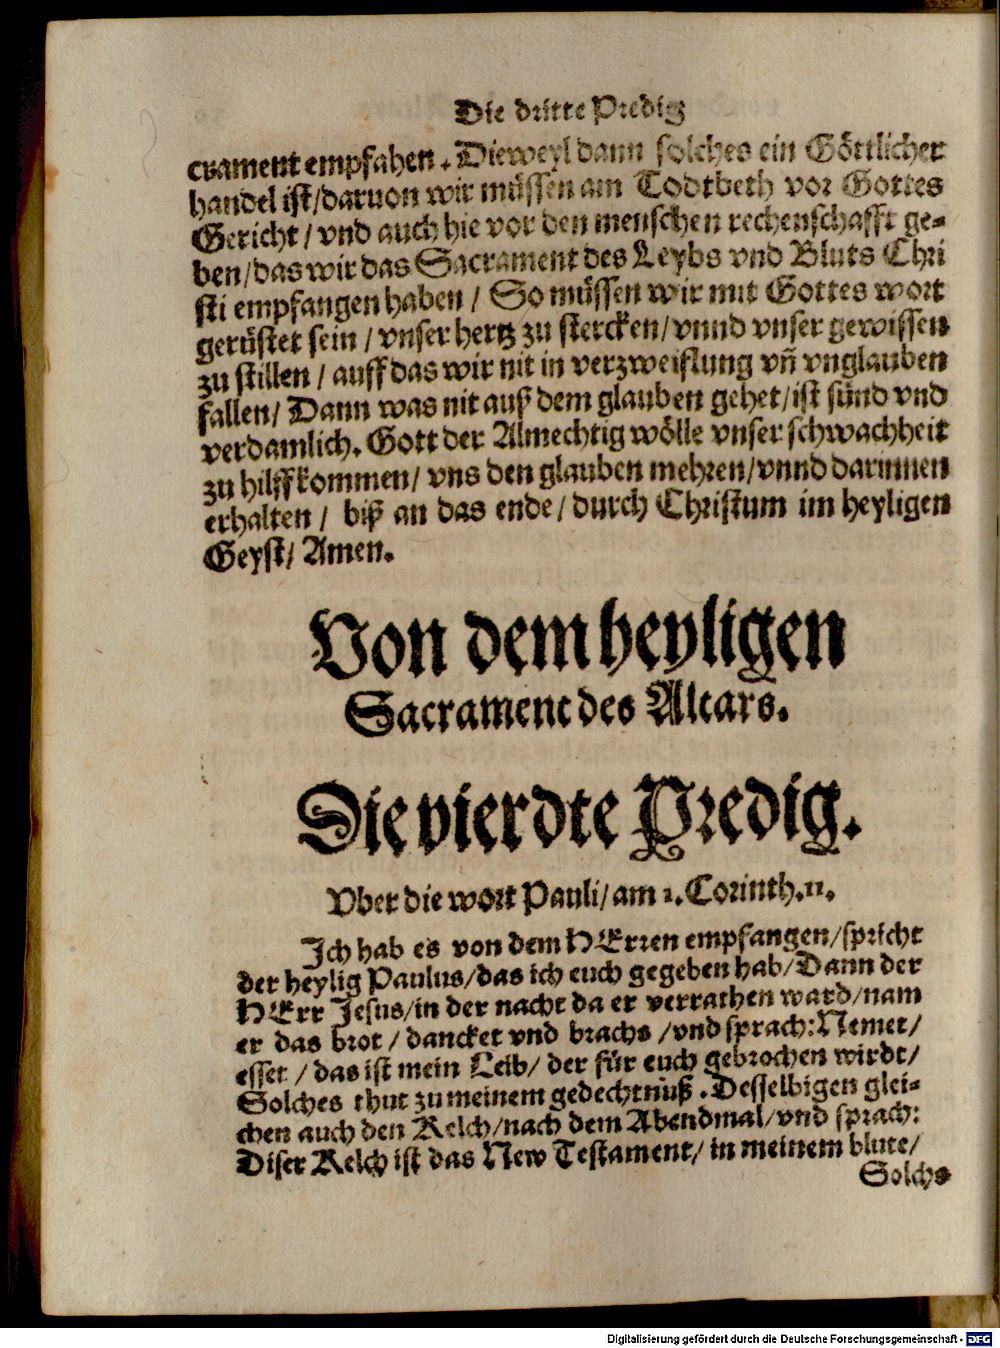 Die dritte Predig
crament empfahen. Dieweyl dann solches ein Göttlicher
handel ist/daruon wir müssen am Todtbeth vor Gottes
Gericht/vnd auch hie vor den menschen rechenschafft ge-
ben/das wir das Sacrament des Leybs vnd Bluts Chri
sti empfangen haben/ So müssen wir mit Gottes wort
gerüstet sein/vnser hertz zu stercken/vnnd vnser gewissen
zu stillen/auff das wir nit in verzweiflung vñ vnglauben
fallen/Dann was nit auß dem glauben gehet/ist sünd vnd
verdamlich. Gott der Almechtig wölle vnser schwachheit
zu hilff kommen/vns den glauben mehren/vnnd darinnen
erhalten/ biß an das ende/durch Christum im heyligen
Geyst/Amen.
Von dem heyligen
Sacrament des Altars.
Die vierdte Predig.
Vber die wort Pauli/am 1. Corinth. 11.
Ich hab es von dem HErren empfangen/spricht
der heylig Paulus/das ich euch gegeben hab/Dann der
HErr Jesus/in der nacht da er verrathen ward/nam
er das brot/dancket vnd brachs/vnd sprach: Nemet/
esset/das ist mein Leib/der für euch gebrochen wirdt/
Solches thut zu meinem gedechtnüß. Desselbigen glei-
chen auch den Kelch/nach dem Abendmal/vnd sprach:
Diser Kelch ist das New Testament/in meinem blute/
Solchs
Digitalisierung gefördert durch die Deutsche Forschungsgemeinschaft - DFG